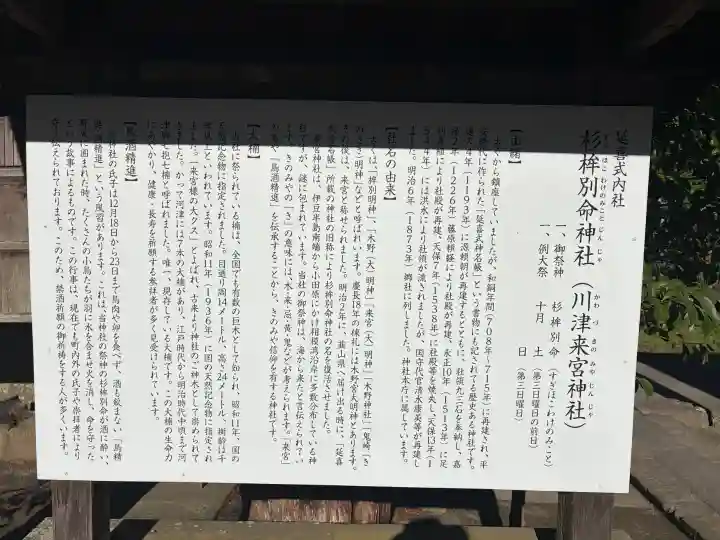 延喜式内社
杉桙別命神社（川津来宮神社）
すぎほこわけのみことじんじゃ　かわづきのみやじんじゃ
一、御祭神　杉桙別命（すぎほこわけのみこと）
一、例大祭　十月　土（第三日曜日の前日）
日（第三日曜日）
【由緒】
古くから鎮座していましたが、和銅年間（708年～715年）に再建され、平
安時代に作られた「延喜式神名帳」という書物にも記されてる歴史ある神社です。
建久4年（1193年）に源頼朝が再建するとともに、社領かと石を奉納し、嘉
禄2年（1226年）藤原頼経により社殿が再建、永正10年（1513年）に足
利義稙により社殿が再建、天保7年（1538年）に社殿等を焼失し、天保13年（1
544年）には洪水により社領が流されましたが、国守代官清水康英等が再建し
ました。明治6年（1873年）郷社に列しました。神社本庁に属しています。
【社名の由来】
古くは、「桙別明神」、「木野（大）明神」、「来宮（大）明神」、「木野神社」、「鬼崎（き
のさき）明神」などと呼ばれています。慶長18年の棟札には木野宮大明神とあります。
その後は、来宮と称せられました。明治2年に、韮山県へ届け出る時に、「延喜
式神名帳」所載の神社の旧称により杉桙別命神社の名を復活させました。
来宮神社は、伊豆半島南端から小田原にかけ相模湾沿岸に多数分布している神
社ですが、謎に包まれています。当社の御祭神は、海から来たと言伝えられてい
ます。きのみやの「き」の意味には、水・来・忌・黄・鬼などが考えられます。「来宮」
は「鳥酒精進」を伝承することから、きのみや信仰を有する神社です。
【大楠】
当社に祭られている楠は、全国でも有数の巨木として知られ、昭和11年、国の
天然記念物に指定されました。目通り周14メートル、高さ24メートル、樹齢は千
年以上といわれています。昭和11年（1936年）に国の天然記念物に指定され
ました。「来宮様の大クス」とよばれ、古来より神社のご神木として崇められて
きました。かつて河津には7本の大楠があり、江戸時代から明治時代中頃まで河
津郷七抱七楠と呼ばれました。唯一、現存している大楠です。この大楠の生命力
にあやかり、健康・長寿を祈願する参拝者が多く見受けられています。
【鳥酒精進】
当神社の氏子は12月18日から23日まで鳥肉や卵を食べず、酒も飲まない、「鳥精
進・酒精進」という風習があります。これは、当神社の祭神の杉桙別命が酒に酔い、
野火に囲まれた時、たくさんの小鳥たちが羽に水を含ませ火を消し、命を守った
という故事によるものです。この行事は、現在でも町内外の氏子や崇拝者により
守り伝えられております。このため、禁酒祈願の御祈祷をする人が多くいます。